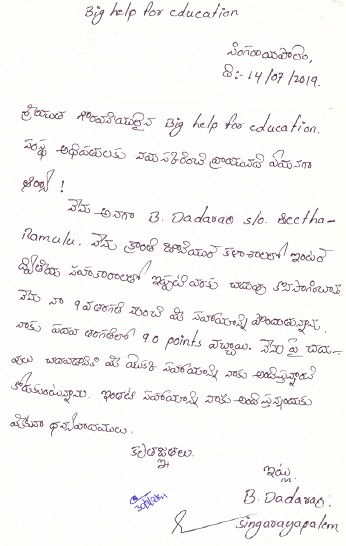 Big help for education
సింగరాయపాలెం,
ది:- 14/07/2019.
శ్రీయుత గౌరవనీయులైన Big help for education.
సంస్థ అధిపతులకు నమస్కరించి వ్రాయునది ఏమనగా
అండి !
నేను అనగా B. Dadarao s/o. Seetha-
Ramulu. నేను క్రాంతి జూనియర్ కళాశాలలో ఇంటర్
ద్వితీయ
నేను నా 9వ తరగతి నుంచి మీ సహాయాన్ని పొందుతున్నాను.
నాకు పదవ తరగతిలో 9.0 points వచ్చాయి. నేను పై చదు-
వులు చదవడానికి మీ యొక్క సహాయాన్ని నాకు అందిస్తారని
కోరుకుంటున్నాను. ఇంతటి సహాయాన్ని నాకు అందిస్తున్నందుకు
మీకు నా ధన్యవాదములు.
కృతజ్ఞతలు.
ఇట్లు
B. Dadarao.
Singarayapalem